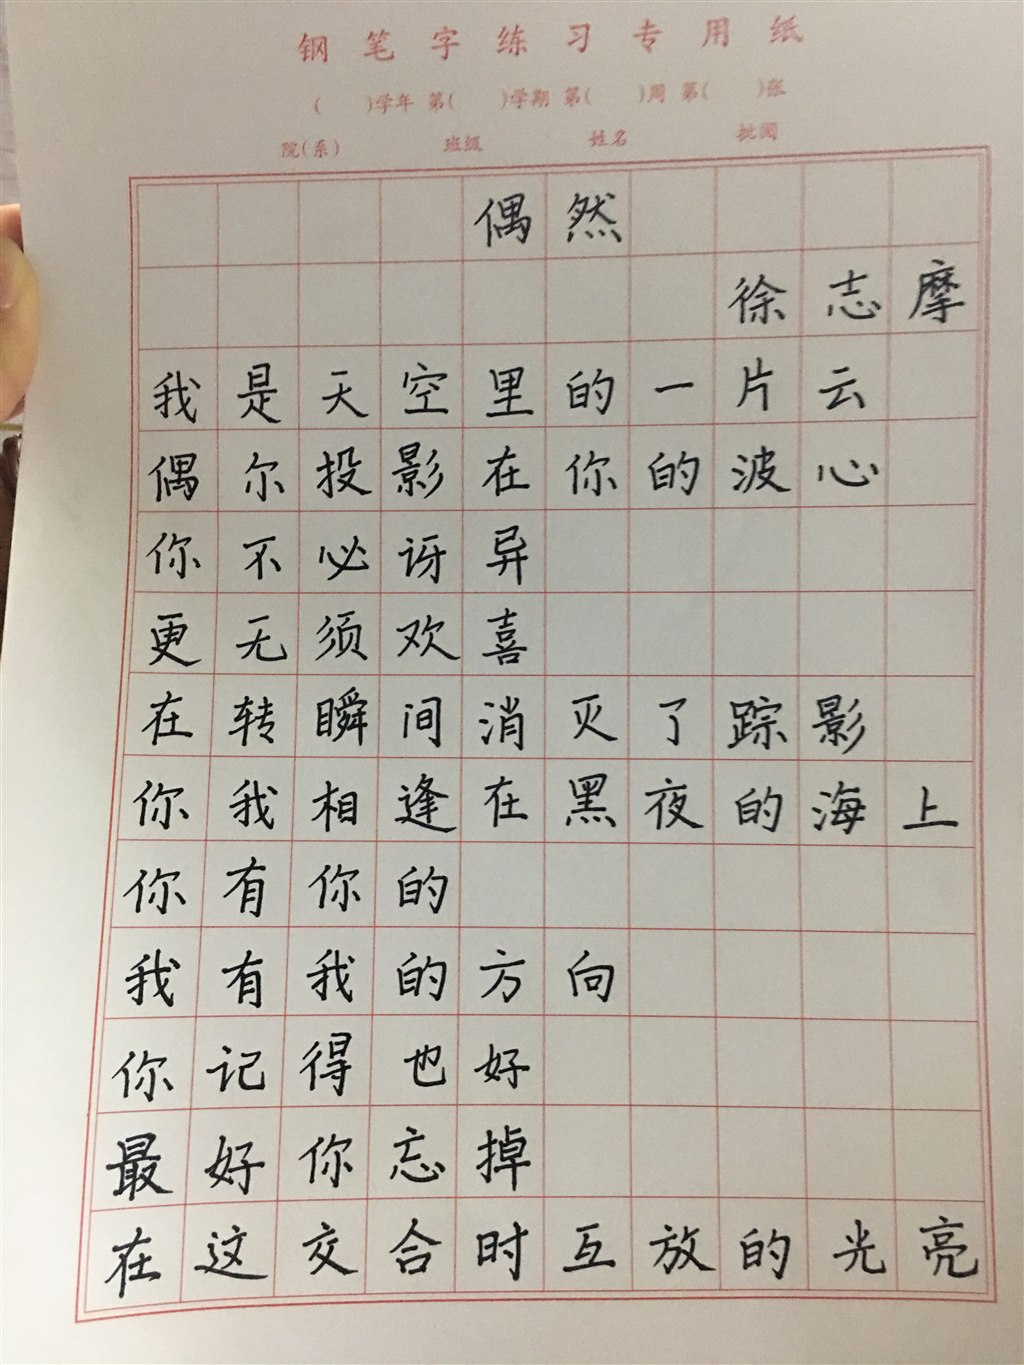 钢笔字练习专用纸
(　)学年 第(　)学期 第(　)周 第(　)张
院(系)　班级　姓名　批阅
偶然
徐志摩
我是天空里的一片云
偶尔投影在你的波心
你不必讶异
更无须欢喜
在转瞬间消灭了踪影
你我相逢在黑夜的海上
你有你的
我有我的方向
你记得也好
最好你忘掉
在这交合时互放的光亮